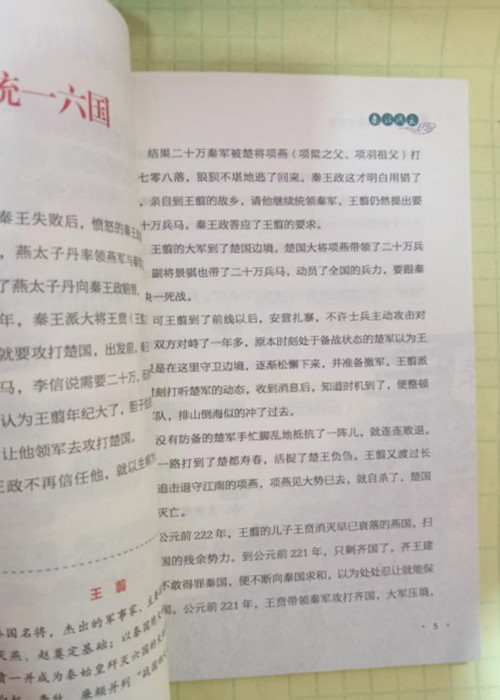 统一六国
秦王失败后，愤怒的秦王
，燕太子丹率领燕军与秦
了燕太子丹向秦王政
年，秦王派大将王贲（王
就要攻打楚国，出发前，秦
马，李信说需要二十万，
认为王翦年纪大了，胆子
让他领军去攻打楚国。
王政不再信任他，就以生病为
王翦
国名将，杰出的军事家，主要
灭燕、赵奠定基础；以秦国绝大
贲一并成为秦始皇歼灭六国的
起、李牧、廉颇并列“战国
结果二十万秦军被楚将项燕（项梁之父、项羽祖父）打
七零八落，狼狈不堪地逃了回来。秦王政这才明白用错了
，亲自到王翦的故乡，请他继续统领秦军。王翦仍然提出要
十万兵马。秦王政答应了王翦的要求。
王翦的大军到了楚国边境。楚国大将项燕带领了二十万兵
副将景骐也带了二十万兵马，动员了全国的兵力，要跟秦
决一死战。
可王翦到了前线以后，安营扎寨，不许士兵主动攻击对
双方对峙了一年多，原本时刻处于备战状态的楚军以为王
是在这里守卫边境，逐渐松懈下来，并准备撤军。王翦派
刻打听楚军的动态，收到消息后，知道时机到了，便整顿
队，排山倒海似的冲了过去。
没有防备的楚军手忙脚乱地抵抗了一阵儿，就连连败退。
一路打到了楚都寿春，活捉了楚王负刍。王翦又渡过长
追击退守江南的项燕，项燕见大势已去，就自杀了，楚国
灭亡。
公元前 222 年，王翦的儿子王贲消灭早已衰落的燕国，扫
国的残余势力。到公元前 221 年，只剩齐国了。齐王建
不敢得罪秦国，便不断向秦国求和，以为处处忍让就能保
国。公元前 221 年，王贲带领秦军攻打齐国，大军压境，
· 5 ·